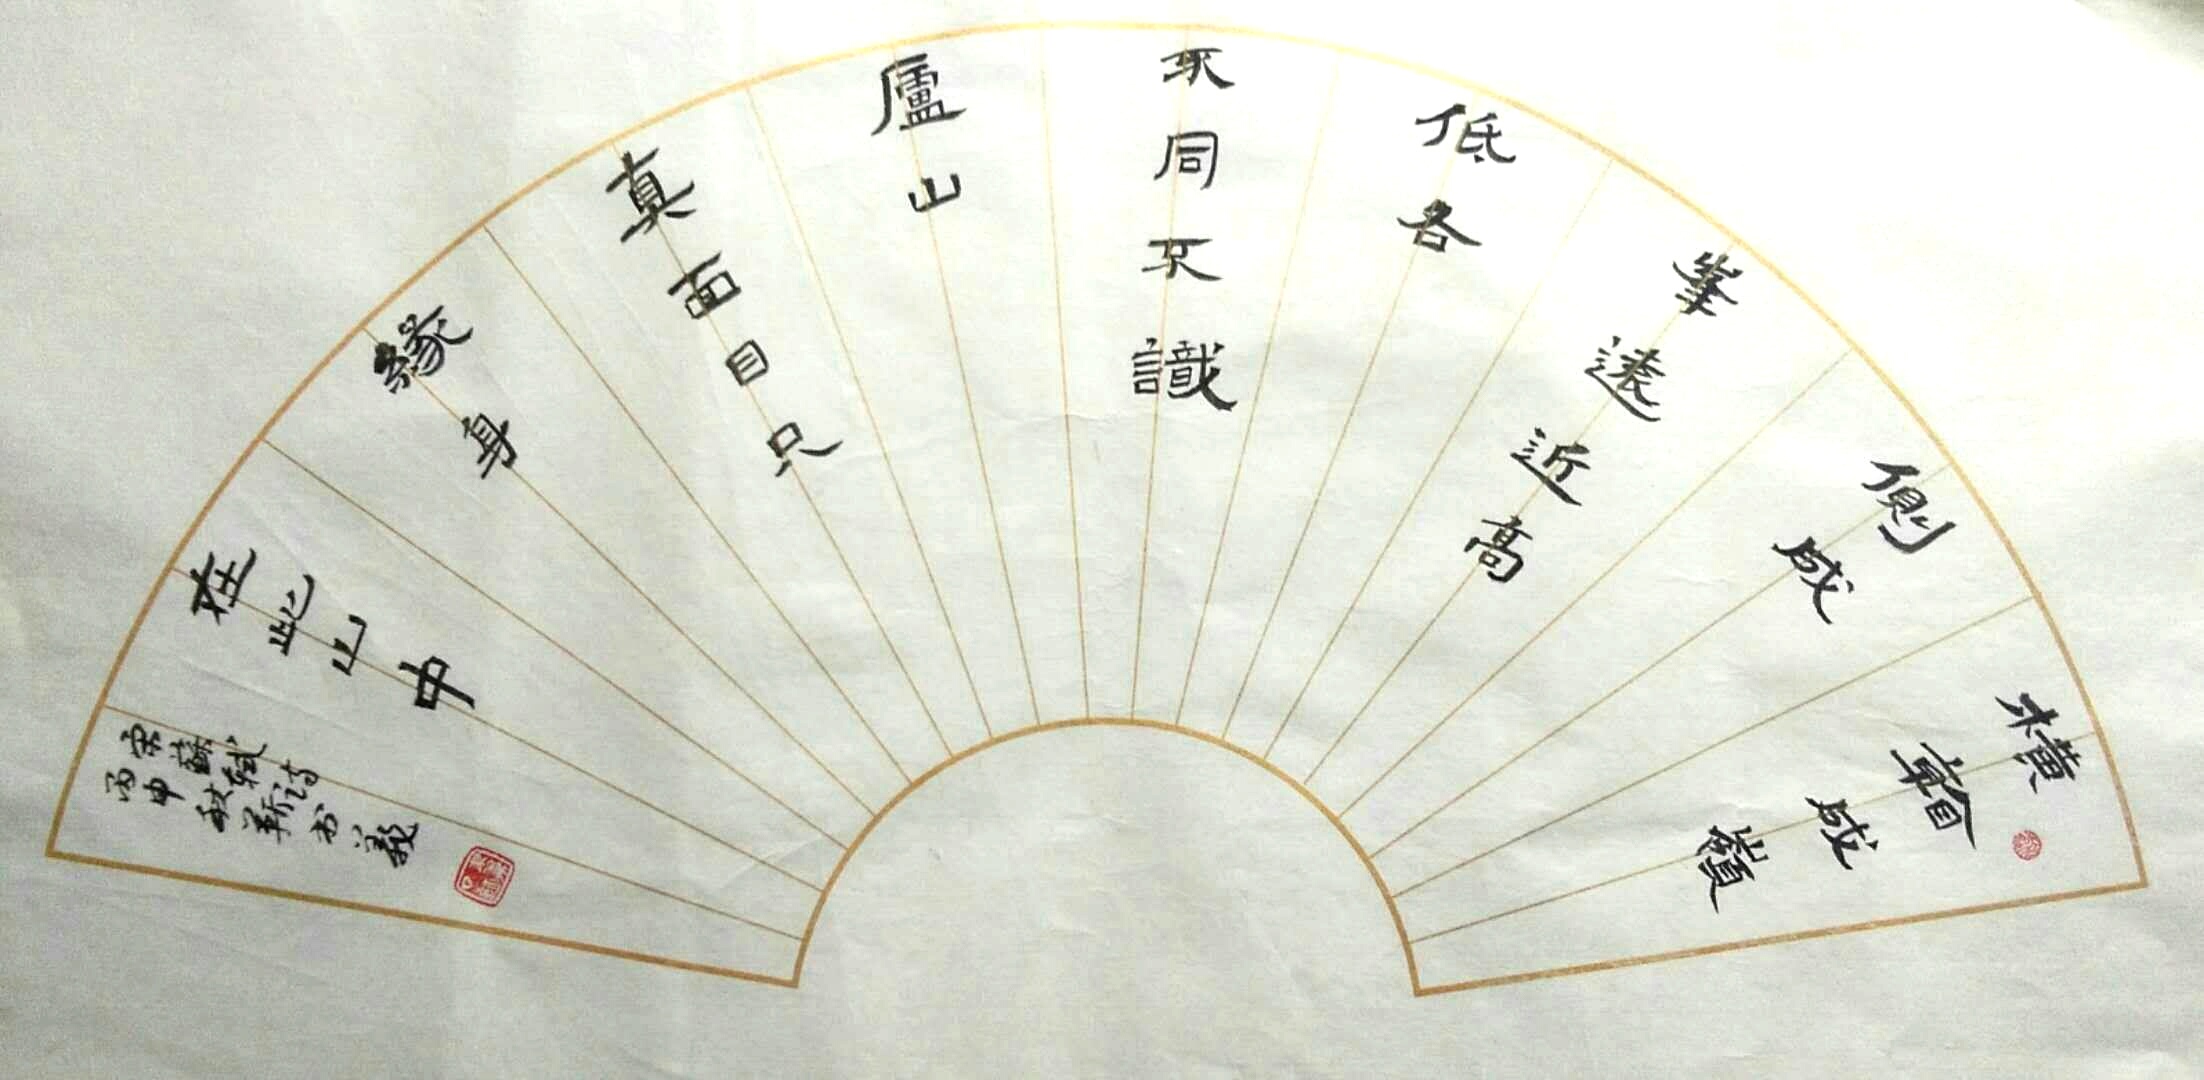 橫看成嶺
側成
峯遠近高
低各
不同不識
廬山
真面目只
緣身
在此山中
宋蘇軾詩书
丙申秋